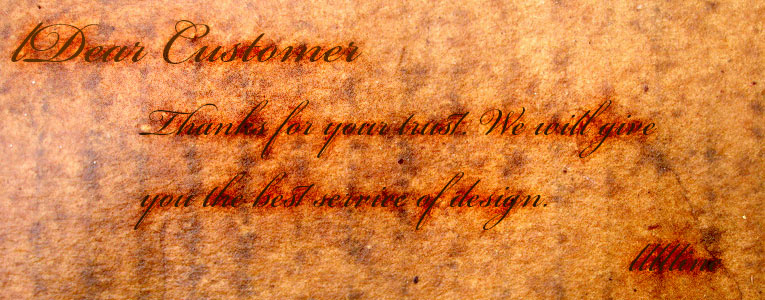 Dear Customer
Thanks for your trust. We will give
you the best service of design.